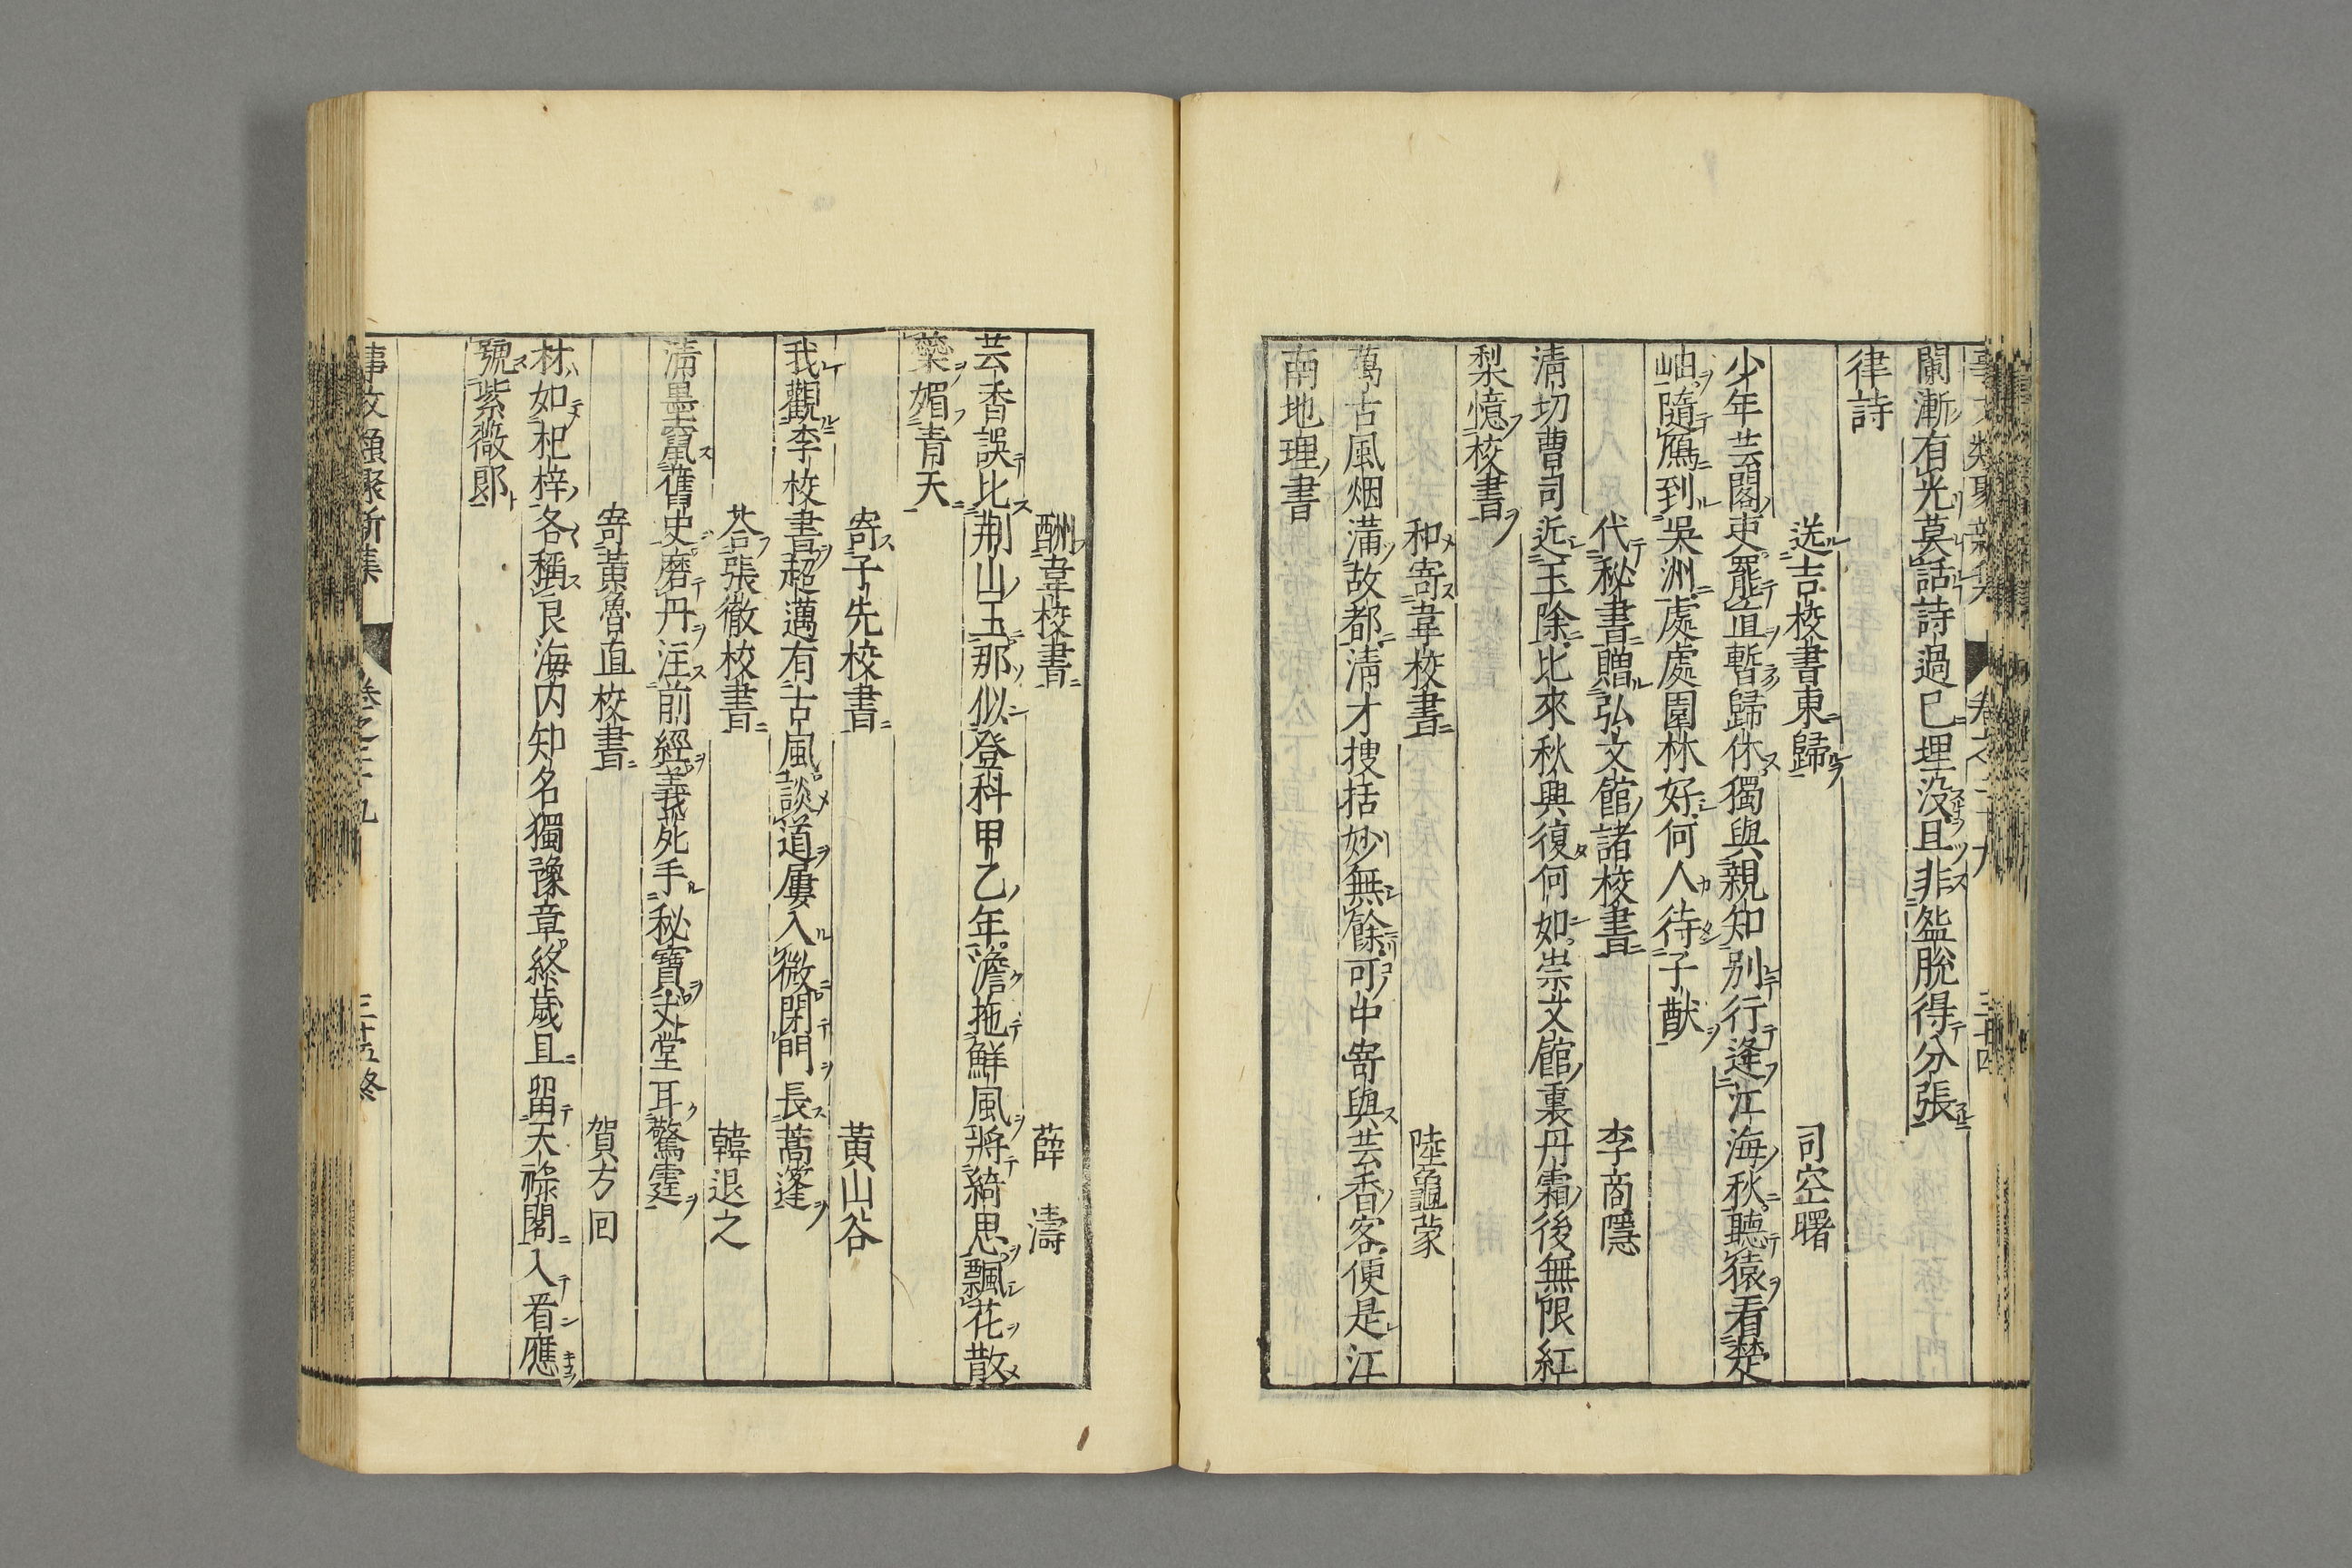 蘭漸有光莫話詩過已埋没且非盌脫得分張
律詩
送吉校書東歸 司空曙
少年芸閣吏罷直暫歸休獨與親知別行逢江海秋聴猿看楚
岫隨鴈到吳洲處處園林好何人待子猷
代秘書贈弘文館諸校書 李商隱
淸切曹司近玉除比來秋興復何如崇文館裏丹霜後無限紅
梨憶校書
和寄韋校書 陸龜蒙
萬古風烟滿故都淸才搜括妙無餘可中寄與芸香客便是江
南地理書
酬韋校書 薛濤
芸香誤比荆山玉那似登科甲乙年澹拖鮮風將綺思飄花散
蘂媚青天
寄子先校書 黃山谷
我觀李校書超邁有古風談道屢入微閉門長蒿蓬
荅張徹校書 韓退之
淸墨竄舊史磨丹注前經義死手秘寶文堂耳驚霆
寄黃魯直校書 賀方回
材如杞梓各稱良海内知名獨豫章終歲且留天祿閣入看應
號紫薇郞
卷之二十九
三十五終